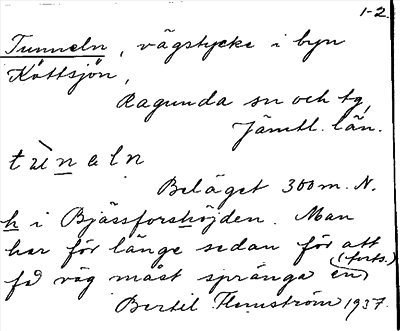 1-2.
Tunneln, vägstycke i byn
Köttsjön,
Ragunda sn och tg,
Jämtl. län.
tùneln
Beläget 300 m. N.
h i Bjässforshöjden. Man
har för länge sedan för att
få väg måst spränga en (forts.)
Bertil Flemström 1937.